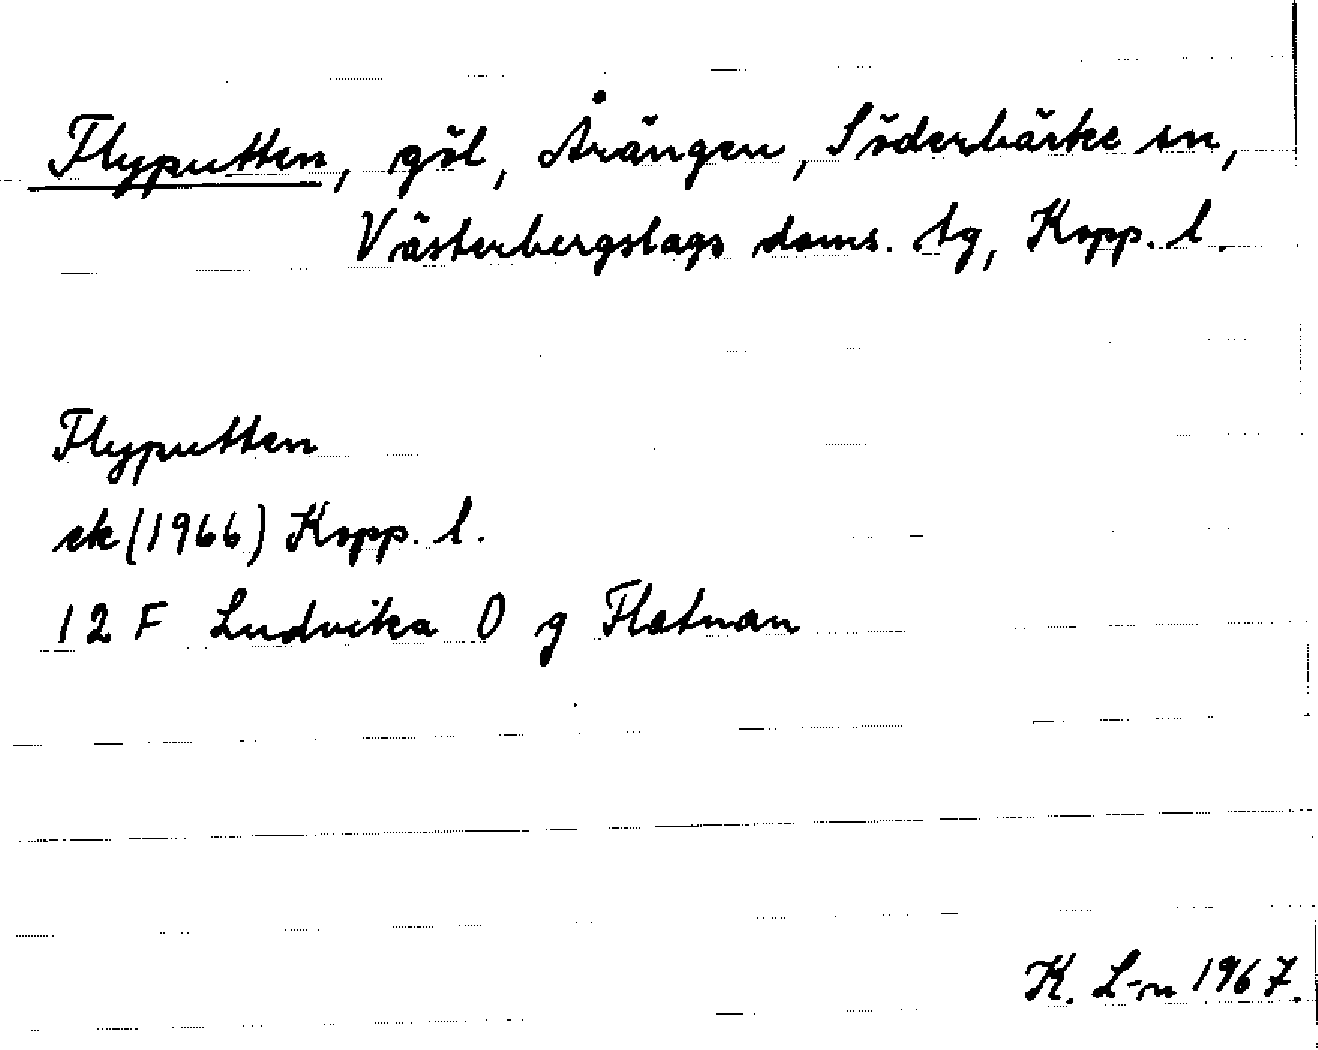 Flyputten, göl, Årängen, Söderbärke sn,
Västerbergslags doms. tg, Kopp. l.
Flyputten
ek (1966) Kopp. l.
12 F Ludvika O g Flatnan
K. L-n 1967.